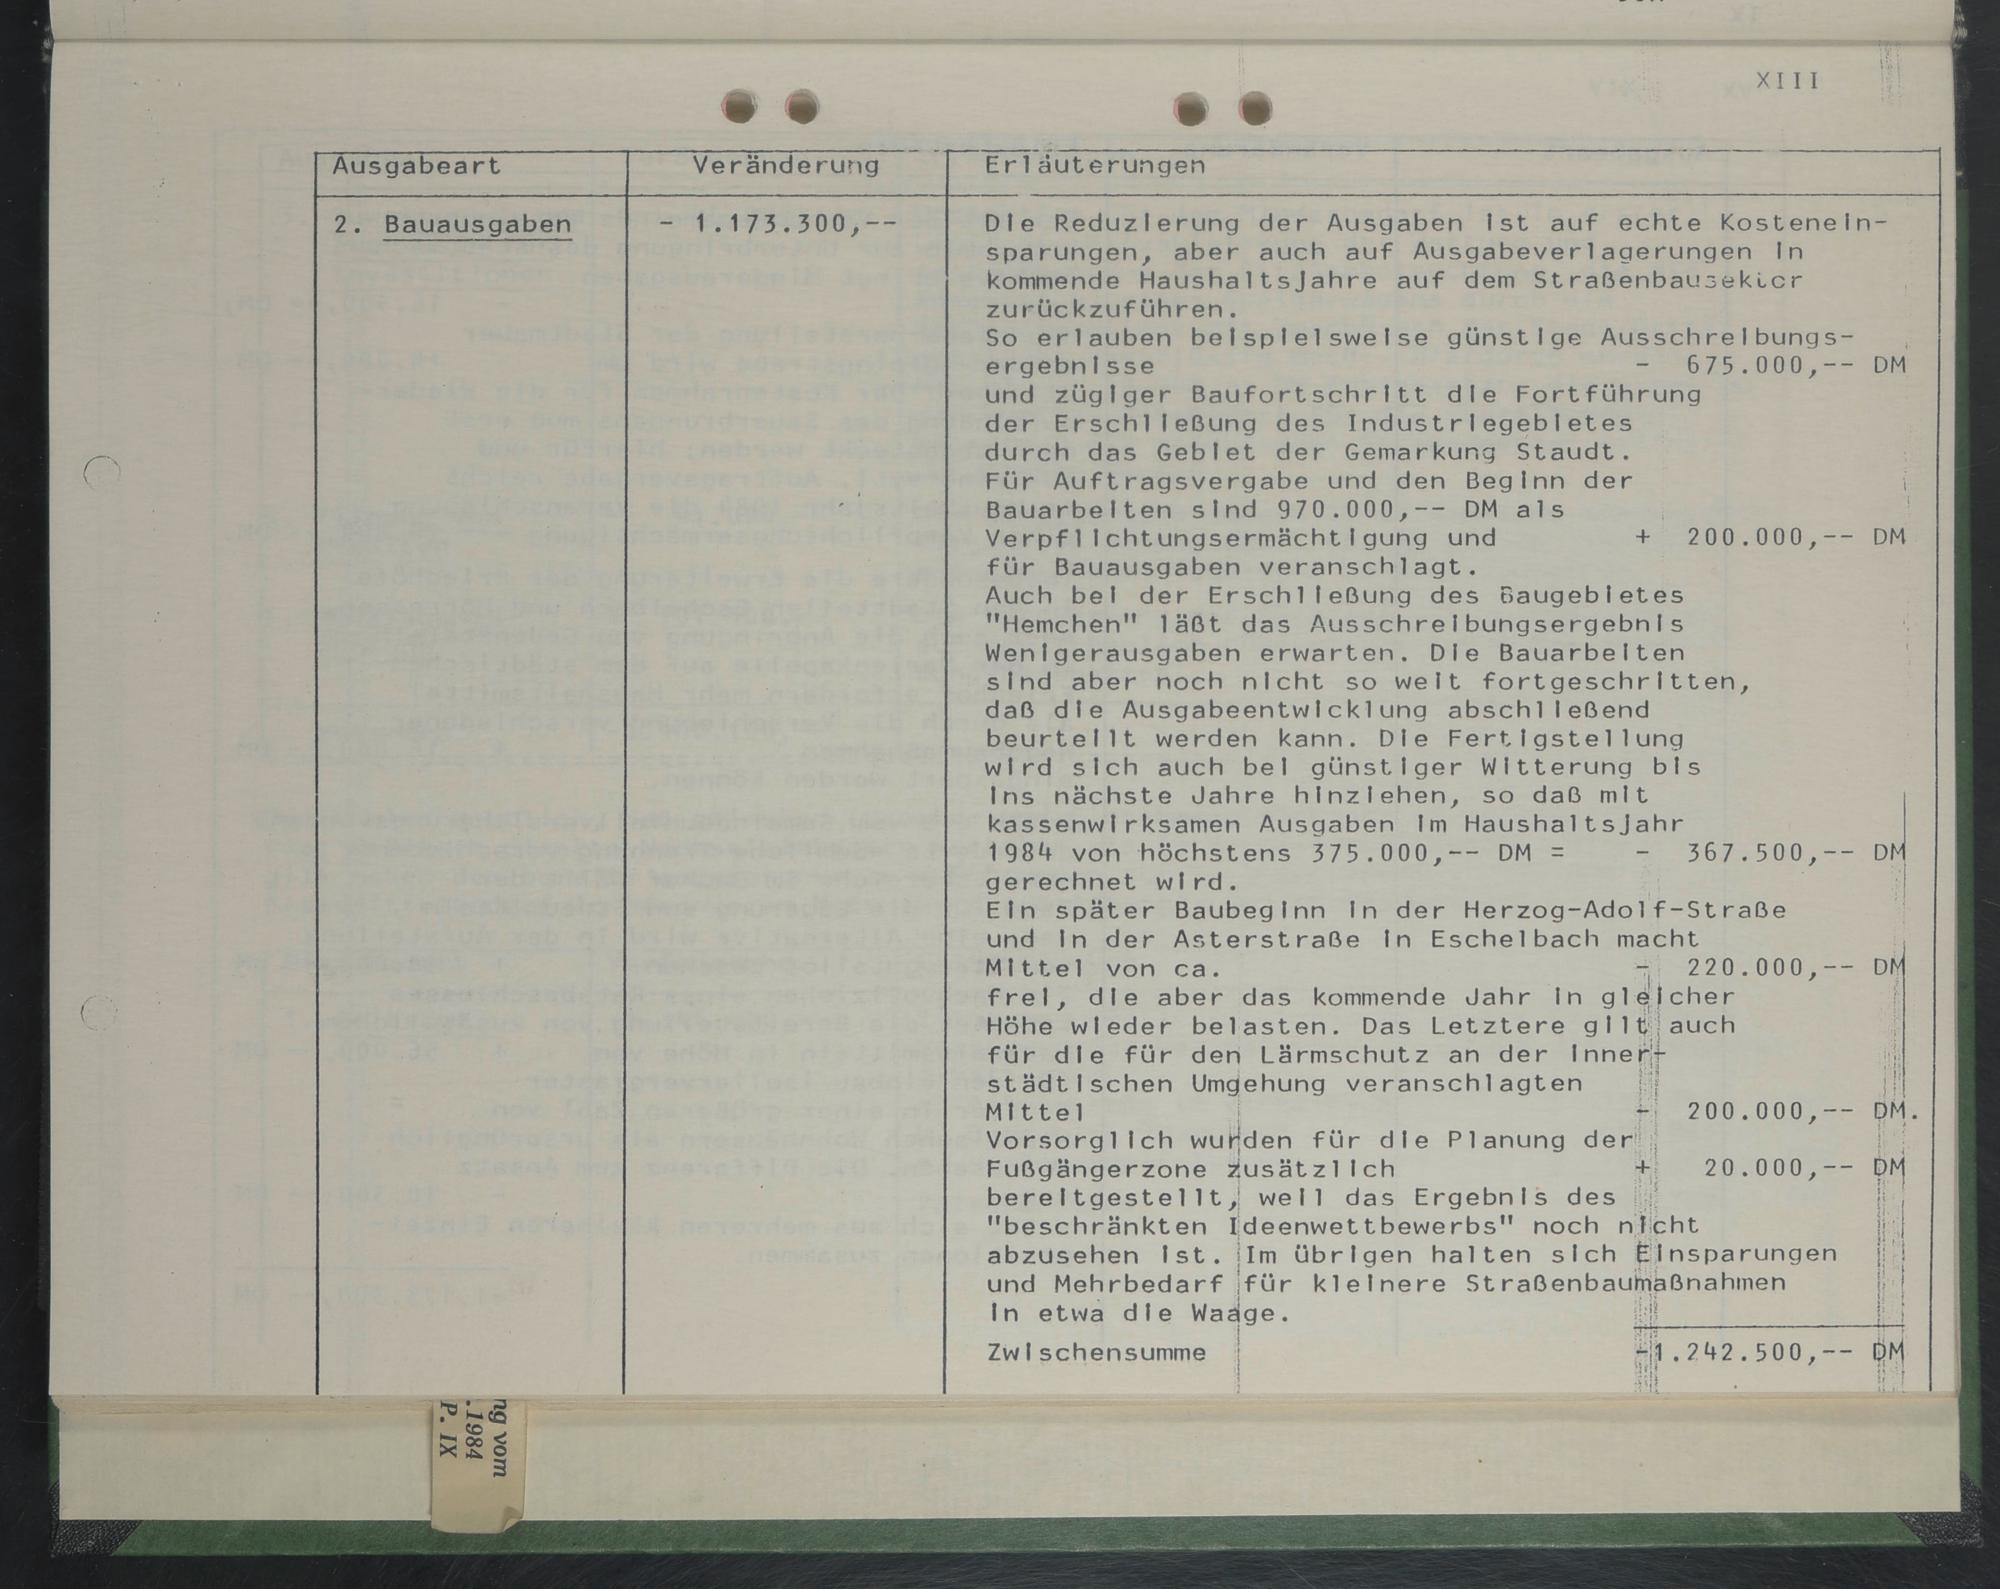 XIII
Ausgabeart Veränderung Erläuterungen
2. Bauausgaben - 1.173.300,-- Die Reduzierung der Ausgaben ist auf echte Kostenein-
sparungen, aber auch auf Ausgabeverlagerungen in
kommende Haushaltsjahre auf dem Straßenbausektor
zurückzuführen.
So erlauben beispielsweise günstige Ausschreibungs-
ergebnisse - 675.000,-- DM
und zügiger Baufortschritt die Fortführung
der Erschließung des Industriegebietes
durch das Gebiet der Gemarkung Staudt.
Für Auftragsvergabe und den Beginn der
Bauarbeiten sind 970.000,-- DM als
Verpflichtungsermächtigung und + 200.000,-- DM
für Bauausgaben veranschlagt.
Auch bei der Erschließung des Baugebietes
"Hemchen" läßt das Ausschreibungsergebnis
Wenigerausgaben erwarten. Die Bauarbeiten
sind aber noch nicht so weit fortgeschritten,
daß die Ausgabeentwicklung abschließend
beurteilt werden kann. Die Fertigstellung
wird sich auch bei günstiger Witterung bis
ins nächste Jahre hinziehen, so daß mit
kassenwirksamen Ausgaben im Haushaltsjahr
1984 von höchstens 375.000,-- DM = - 367.500,-- DM
gerechnet wird.
Ein später Baubeginn in der Herzog-Adolf-Straße
und in der Asterstraße in Eschelbach macht
Mittel von ca. - 220.000,-- DM
frei, die aber das kommende Jahr in gleicher
Höhe wieder belasten. Das Letztere gilt auch
für die für den Lärmschutz an der inner-
städtischen Umgehung veranschlagten
Mittel - 200.000,-- DM.
Vorsorglich wurden für die Planung der
Fußgängerzone zusätzlich + 20.000,-- DM
bereitgestellt, weil das Ergebnis des
"beschränkten Ideenwettbewerbs" noch nicht
abzusehen ist. Im übrigen halten sich Einsparungen
und Mehrbedarf für kleinere Straßenbaumaßnahmen
in etwa die Waage.
Zwischensumme -1.242.500,-- DM
ng vom
.1984
P. IX